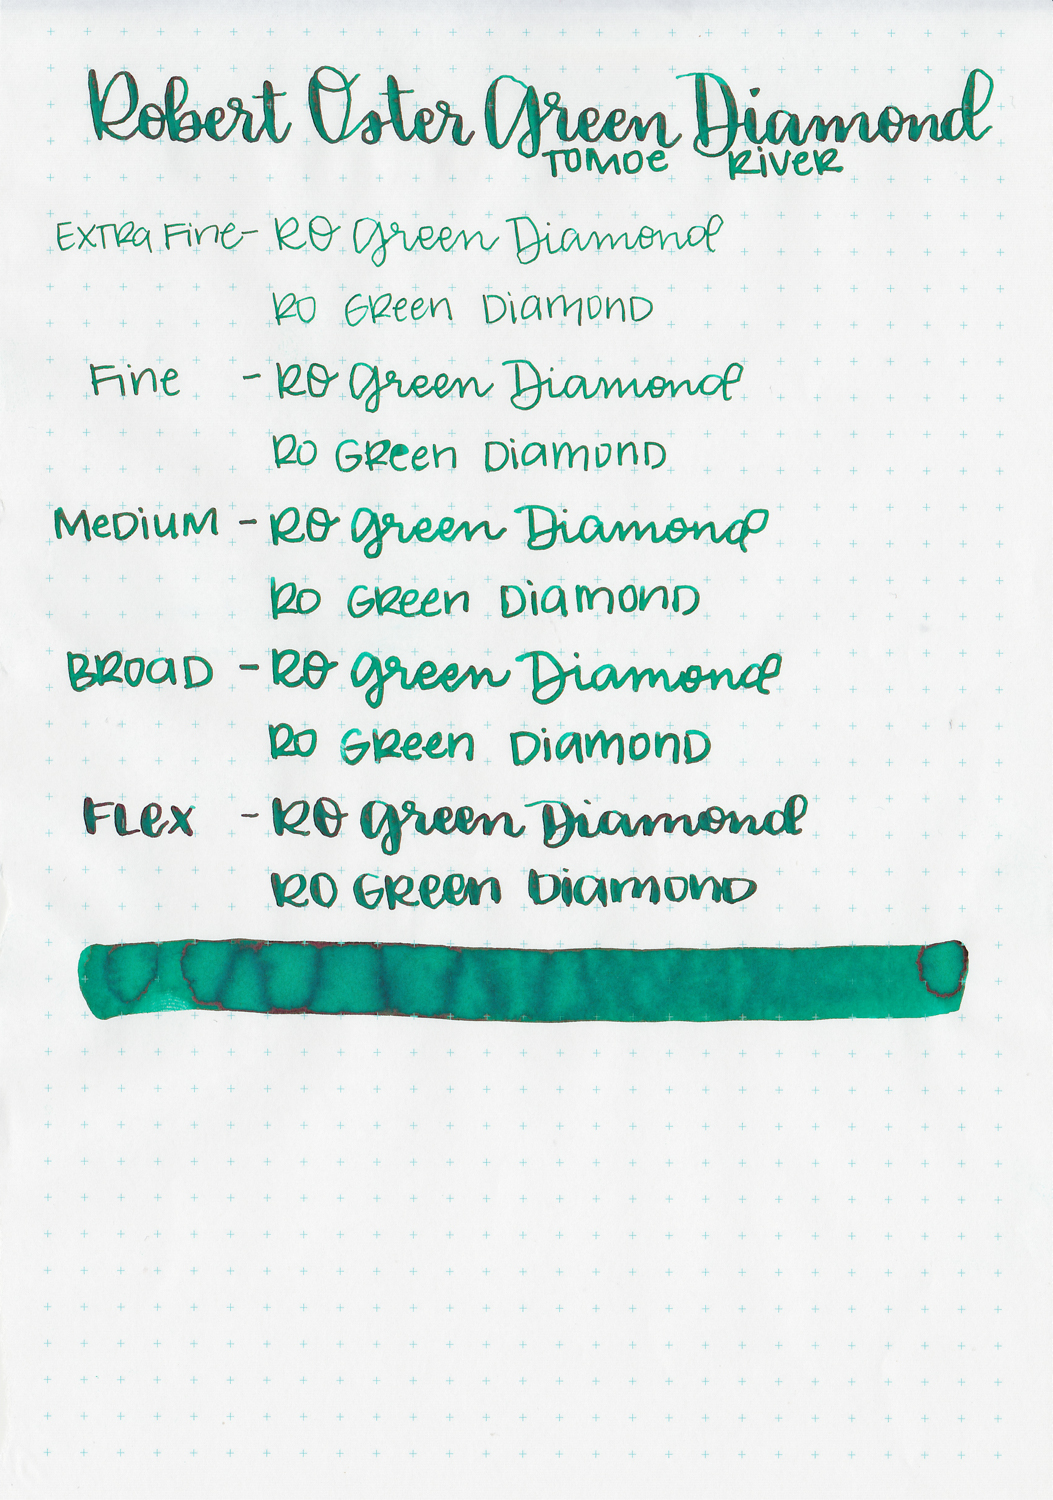 Robert Oster Green Diamond
TOMOE RiVER
EXTRa Fine- RO Green Diamond
RO GReen DiamonD
Fine - RO Green Diamond
RO GReen DiamonD
MeDiuM - RO Green Diamond
RO GReen DiamonD
BROaD - RO Green Diamond
RO GReen DiamonD
FLex - RO Green Diamond
RO GReen DiamonD